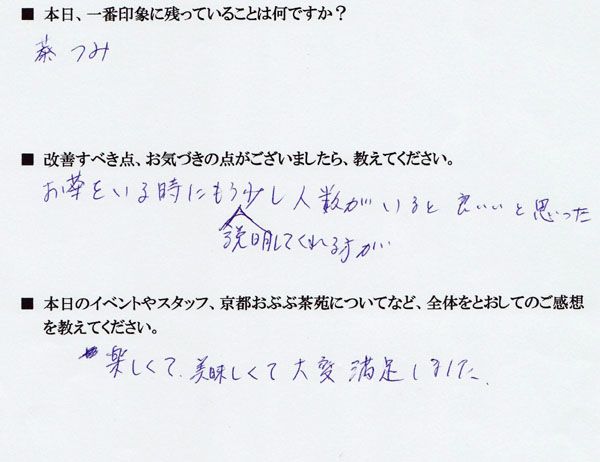 ■ 本日、一番印象に残っていることは何ですか？
茶つみ
■ 改善すべき点、お気づきの点がございましたら、教えてください。
お茶をいる時にもう少し人数がいると良いいと思った
説明してくれる方が
■ 本日のイベントやスタッフ、京都おぶぶ茶苑についてなど、全体をとおしてのご感想
を教えてください。
楽しくて、美味しくて大変満足しました。